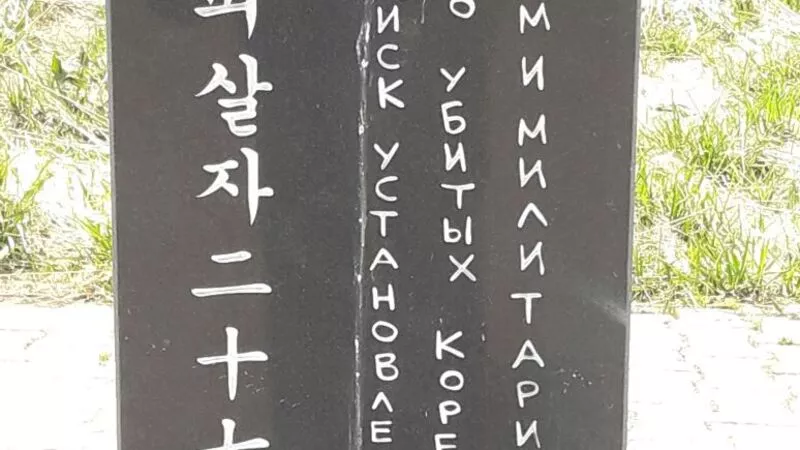 살자二十
ИСК УСТАНОВЛЕ
О УБИТЫХ КОРЕ
МИ МИЛИТАРИ